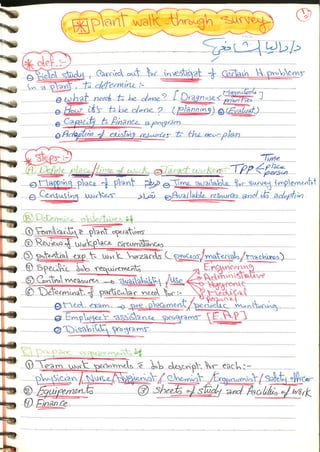 plant walk through survey
1
* def:-
Field study, Carried out for investigat. of Certain H. problems
in a plant, to determine:-
what need to be done? [Diagnose
magnitude
priorities
How it's to be done? (planning) (Evaluat)
Capacity to finance a program
Adaption of existing resources to the new plan
* Steps:-
A) Define place/time of work Target workers TPP
Time
place
person
Mapping place of plant Time available for survey implementat
Censusing workers تعداد Available resources and its adaption
B) Determine objectives
① Familiarity e plant operations
② Review of workplace circumstances
③ potential exp. to work hazards (process/materials/machines)
④ Specific Job requirements
⑤ Control measures → availability/use
Engineering
Administrative
Hygienic
Medical
personal
⑥ Determinat. of particular need for:-
Med. exam. → pre placement/periodic monitoring
Employee's assistance programs [EAP]
Disability programs
C) prepare requirements
① Team work personnels & Job descript. for each:-
physician/Nurse/Hygienist/Chemist/Ergonomist/Safety officer
② Equipements ③ Sheets of study and Facilities of work
④ Finance